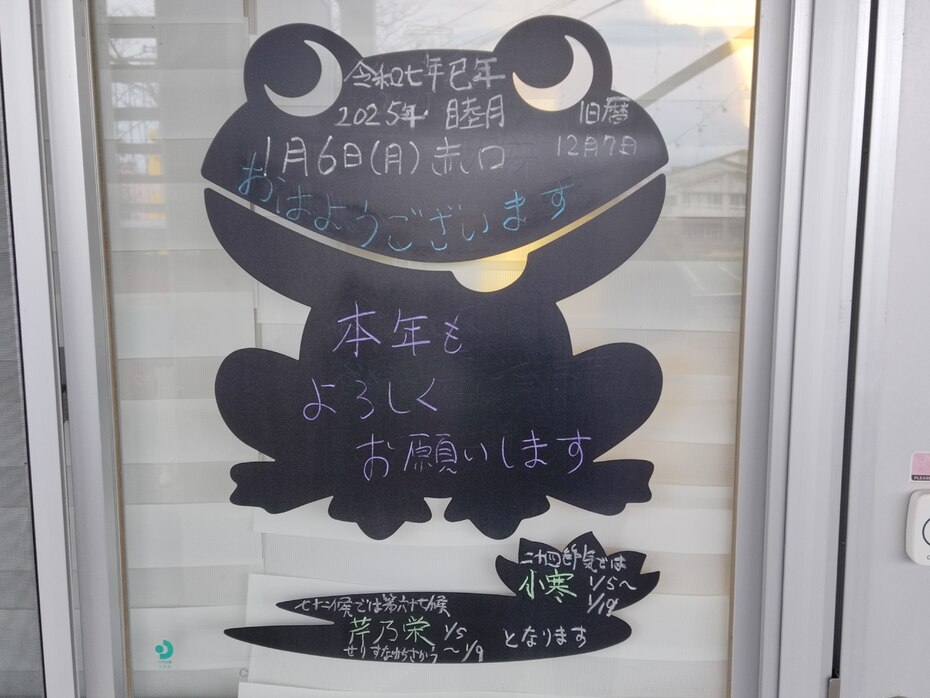 令和七年巳年
2025年 睦月 旧暦
1月6日(月) 赤口 12月7日
おはようございます
本年も
よろしく
お願いします
二十四節気では
小寒 1/5〜
1/19
七十二候では第六十七候
芹乃栄 1/5
せりすなわちさかう 〜1/9
となります